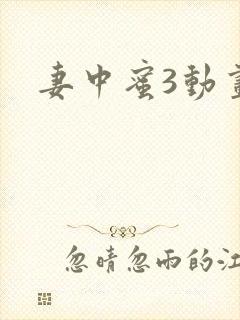 妻中蜜3動
忽晴忽雨的江